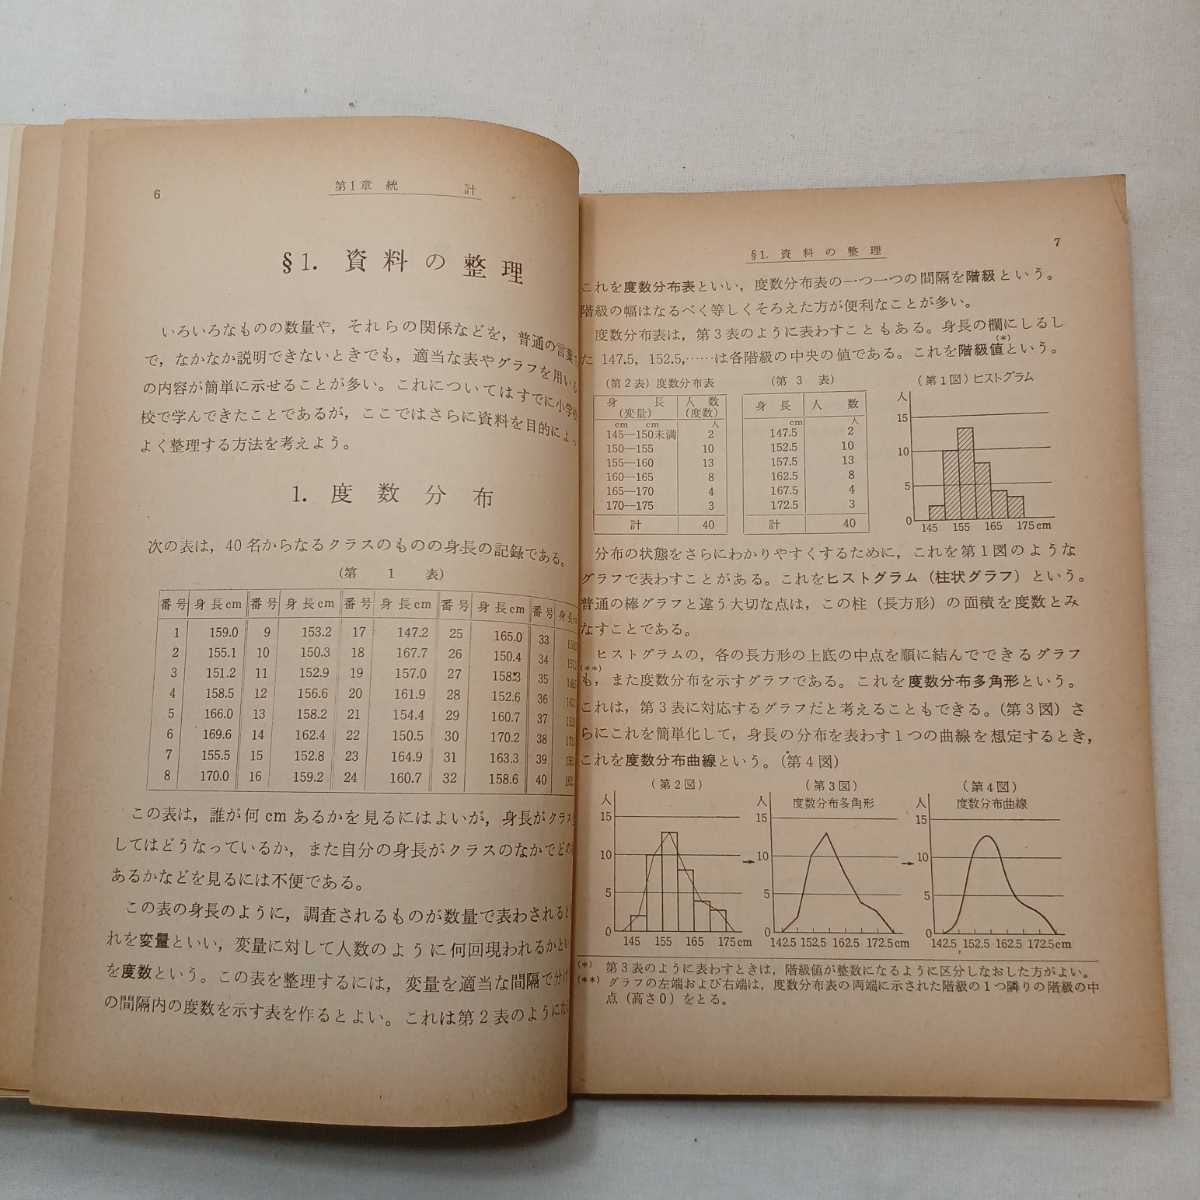 6
第1章 統 計
§1. 資料の整理
いろいろなものの数量や，それらの関係などを，普通の言葉
で，なかなか説明できないときでも，適当な表やグラフを用い
の内容が簡単に示せることが多い。これについてはすでに小学
校で学んできたことであるが，ここではさらに資料を目的によっ
よく整理する方法を考えよう。
1. 度数分布
次の表は，40名からなるクラスのものの身長の記録である。
(第 1 表)
番号 身長cm 番号 身長cm 番号 身長cm 番号 身長cm 番号
1 159.0 9 153.2 17 147.2 25 165.0 33
2 155.1 10 150.3 18 167.7 26 150.4 34
3 151.2 11 152.9 19 157.0 27 158.3 35
4 158.5 12 156.6 20 161.9 28 152.6 36
5 166.0 13 158.2 21 154.4 29 160.7 37
6 169.6 14 162.4 22 150.5 30 170.2 38
7 155.5 15 152.8 23 164.9 31 163.3 39
8 170.0 16 159.2 24 160.7 32 158.6 40
この表は，誰が何cmあるかを見るにはよいが，身長がクラス
してはどうなっているか，また自分の身長がクラスのなかでど
あるかなどを見るには不便である。
この表の身長のように，調査されるものが数量で表わされると
れを変量といい，変量に対して人数のように何回現われるかとい
を度数という。この表を整理するには，変量を適当な間隔で分け
の間隔内の度数を示す表を作るとよい。これは第2表のように
§1. 資料の整理
7
これを度数分布表といい，度数分布表の一つ一つの間隔を階級という。
階級の幅はなるべく等しくそろえた方が便利なことが多い。
度数分布表は，第3表のように表わすこともある。身長の欄にしるし
た 147.5, 152.5,……は各階級の中央の値である。これを階級値(*)という。
(第2表) 度数分布表
身 長 (変量) 人 数 (度数)
cm cm 人
145—150未満 2
150—155 10
155—160 13
160—165 8
165—170 4
170—175 3
計 40
(第 3 表)
身 長 人 数
cm 人
147.5 2
152.5 10
157.5 13
162.5 8
167.5 4
172.5 3
計 40
(第1図) ヒストグラム
人
15
10
5
0
145 155 165 175cm
分布の状態をさらにわかりやすくするために，これを第1図のような
グラフで表わすことがある。これをヒストグラム（柱状グラフ）という。
普通の棒グラフと違う大切な点は，この柱（長方形）の面積を度数とみ
なすことである。
ヒストグラムの，各の長方形の上底の中点を順に結んでできるグラフ
(**)
も，また度数分布を示すグラフである。これを度数分布多角形という。
これは，第3表に対応するグラフだと考えることもできる。(第3図) さ
らにこれを簡単化して，身長の分布を表わす1つの曲線を想定するとき，
これを度数分布曲線という。(第4図)
(第2図)
人
15
10
5
0
145 155 165 175cm
→
(第3図)
度数分布多角形
人
15
10
5
0
142.5 152.5 162.5 172.5cm
→
(第4図)
度数分布曲線
人
15
10
5
0
142.5 152.5 162.5 172.5cm
(*) 第3表のように表わすときは，階級値が整数になるように区分しなおした方がよい。
(**) グラフの左端および右端は，度数分布表の両端に示された階級の1つ隣りの階級の中
点（高さ0）をとる。